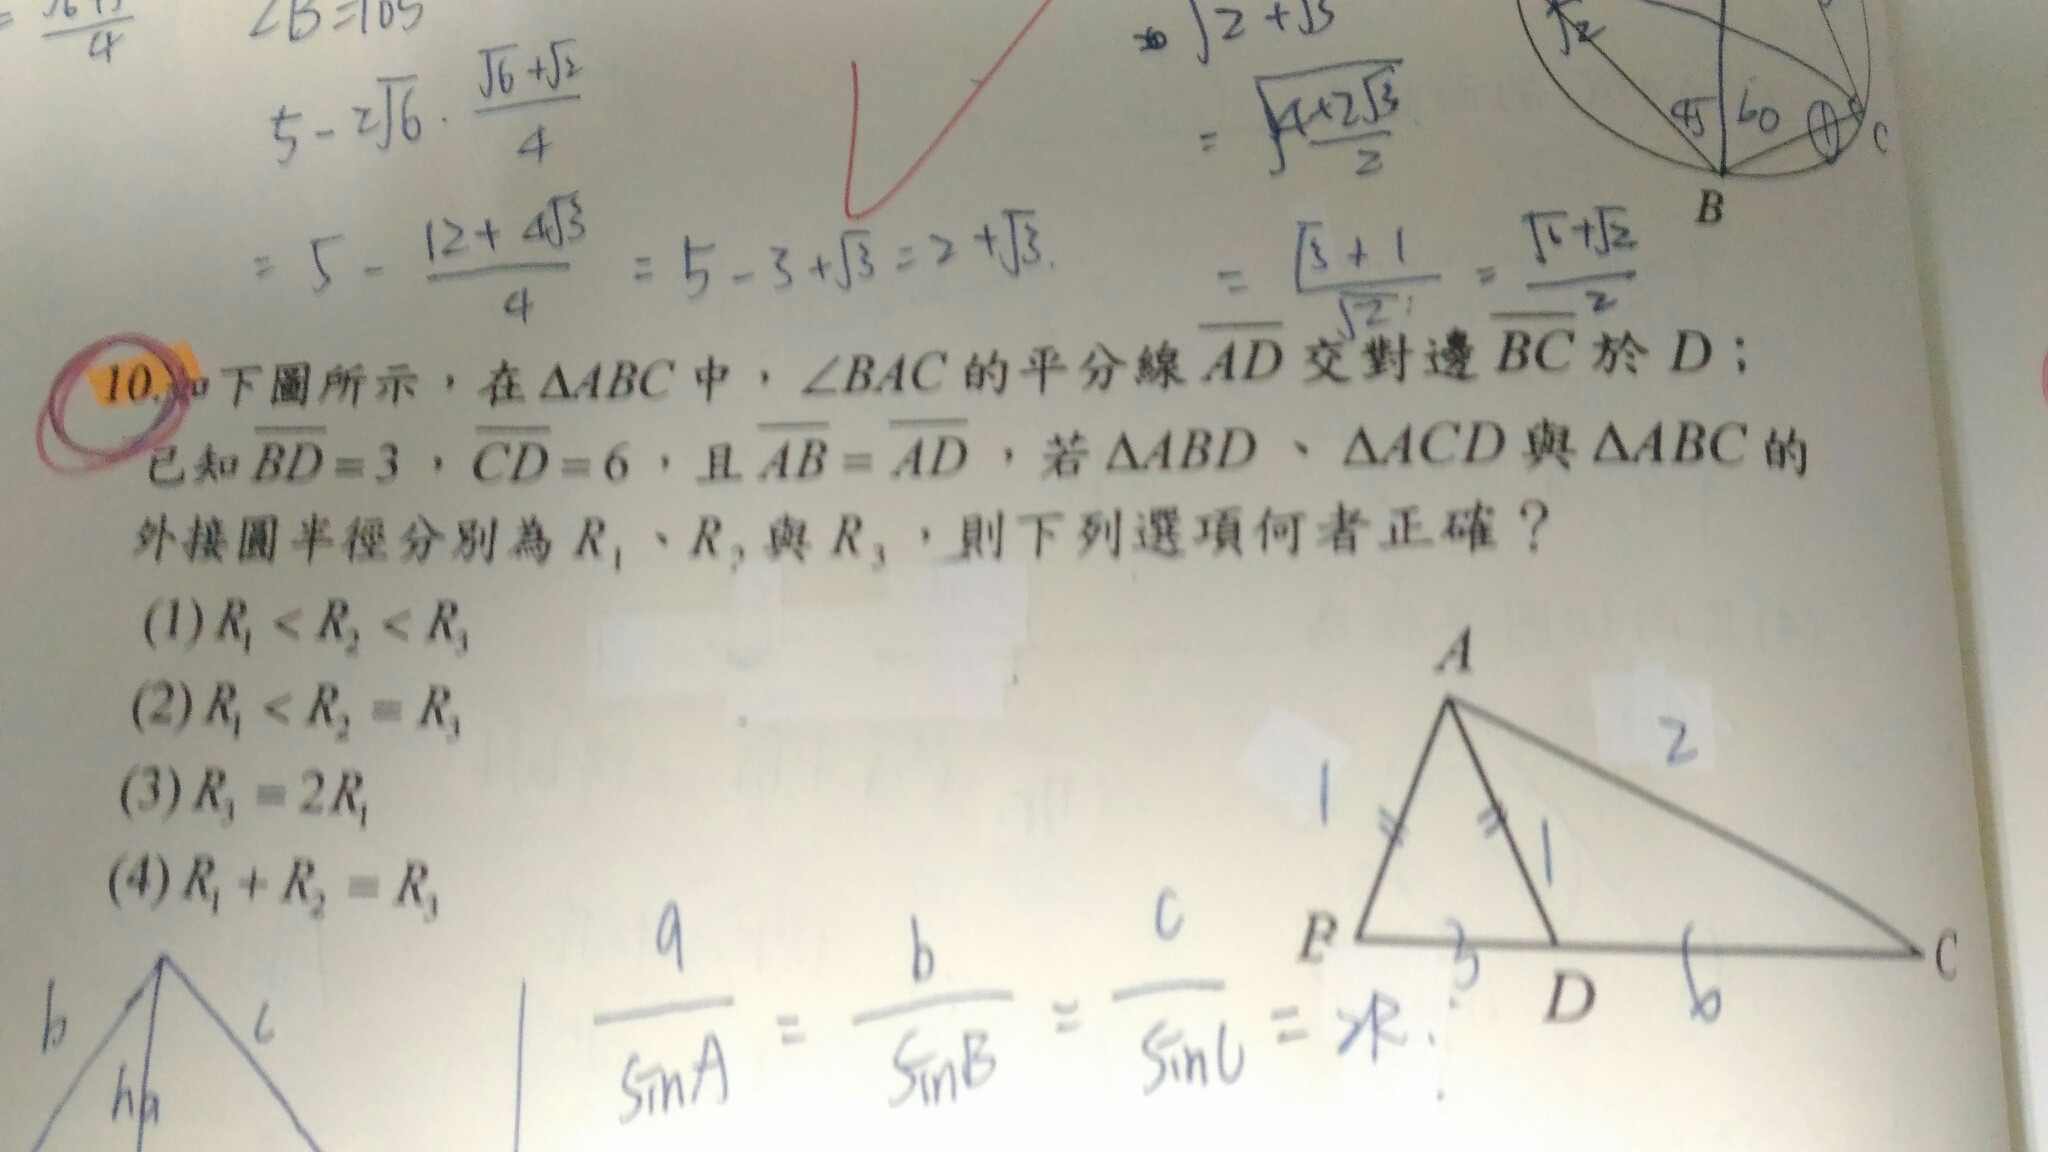 4
∠B=105
5-2√6·(√6+√2)/4
= 5 - (12+4√3)/4 = 5-3+√3=2+√3.
√2+√3
= √(4+2√3)/2
= (√3+1)/√2 = (√6+√2)/2
√2
45 60
C
B
10.如下圖所示，在ΔABC中，∠BAC的平分線AD交對邊BC於D；
已知BD=3，CD=6，且AB=AD，若ΔABD、ΔACD與ΔABC的
外接圓半徑分別為R₁、R₂與R₃，則下列選項何者正確？
(1)R₁<R₂<R₃
(2)R₁<R₂=R₃
(3)R₃=2R₁
(4)R₁+R₂=R₃
A
1 1 2
B 3 D 6 C
a/sinA = b/sinB = c/sinC = 2R.
b c
ha